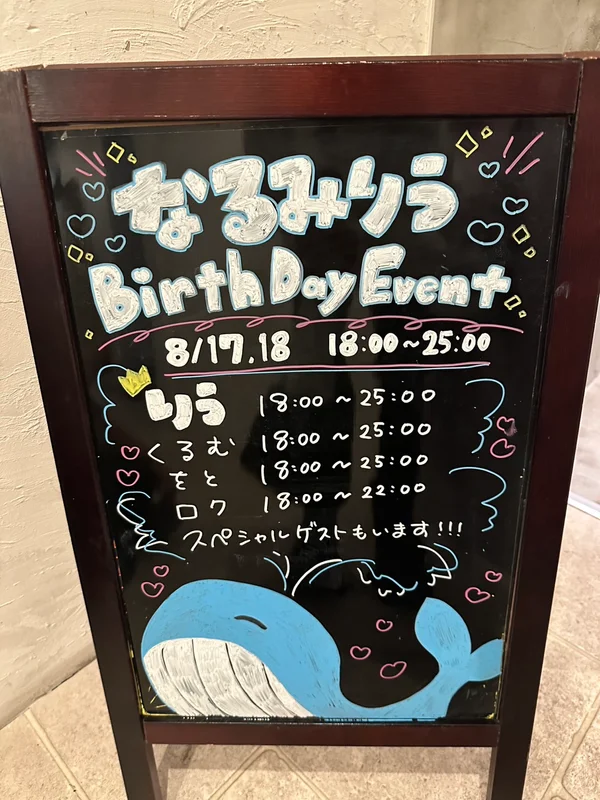 なるみりう
BirthDay Event
8/17.18 18:00~25:00
りう 18:00 ~ 25:00
くるむ 18:00 ~ 25:00
をと 18:00 ~ 25:00
ロク 18:00 ~ 22:00
スペシャルゲストもいます!!!